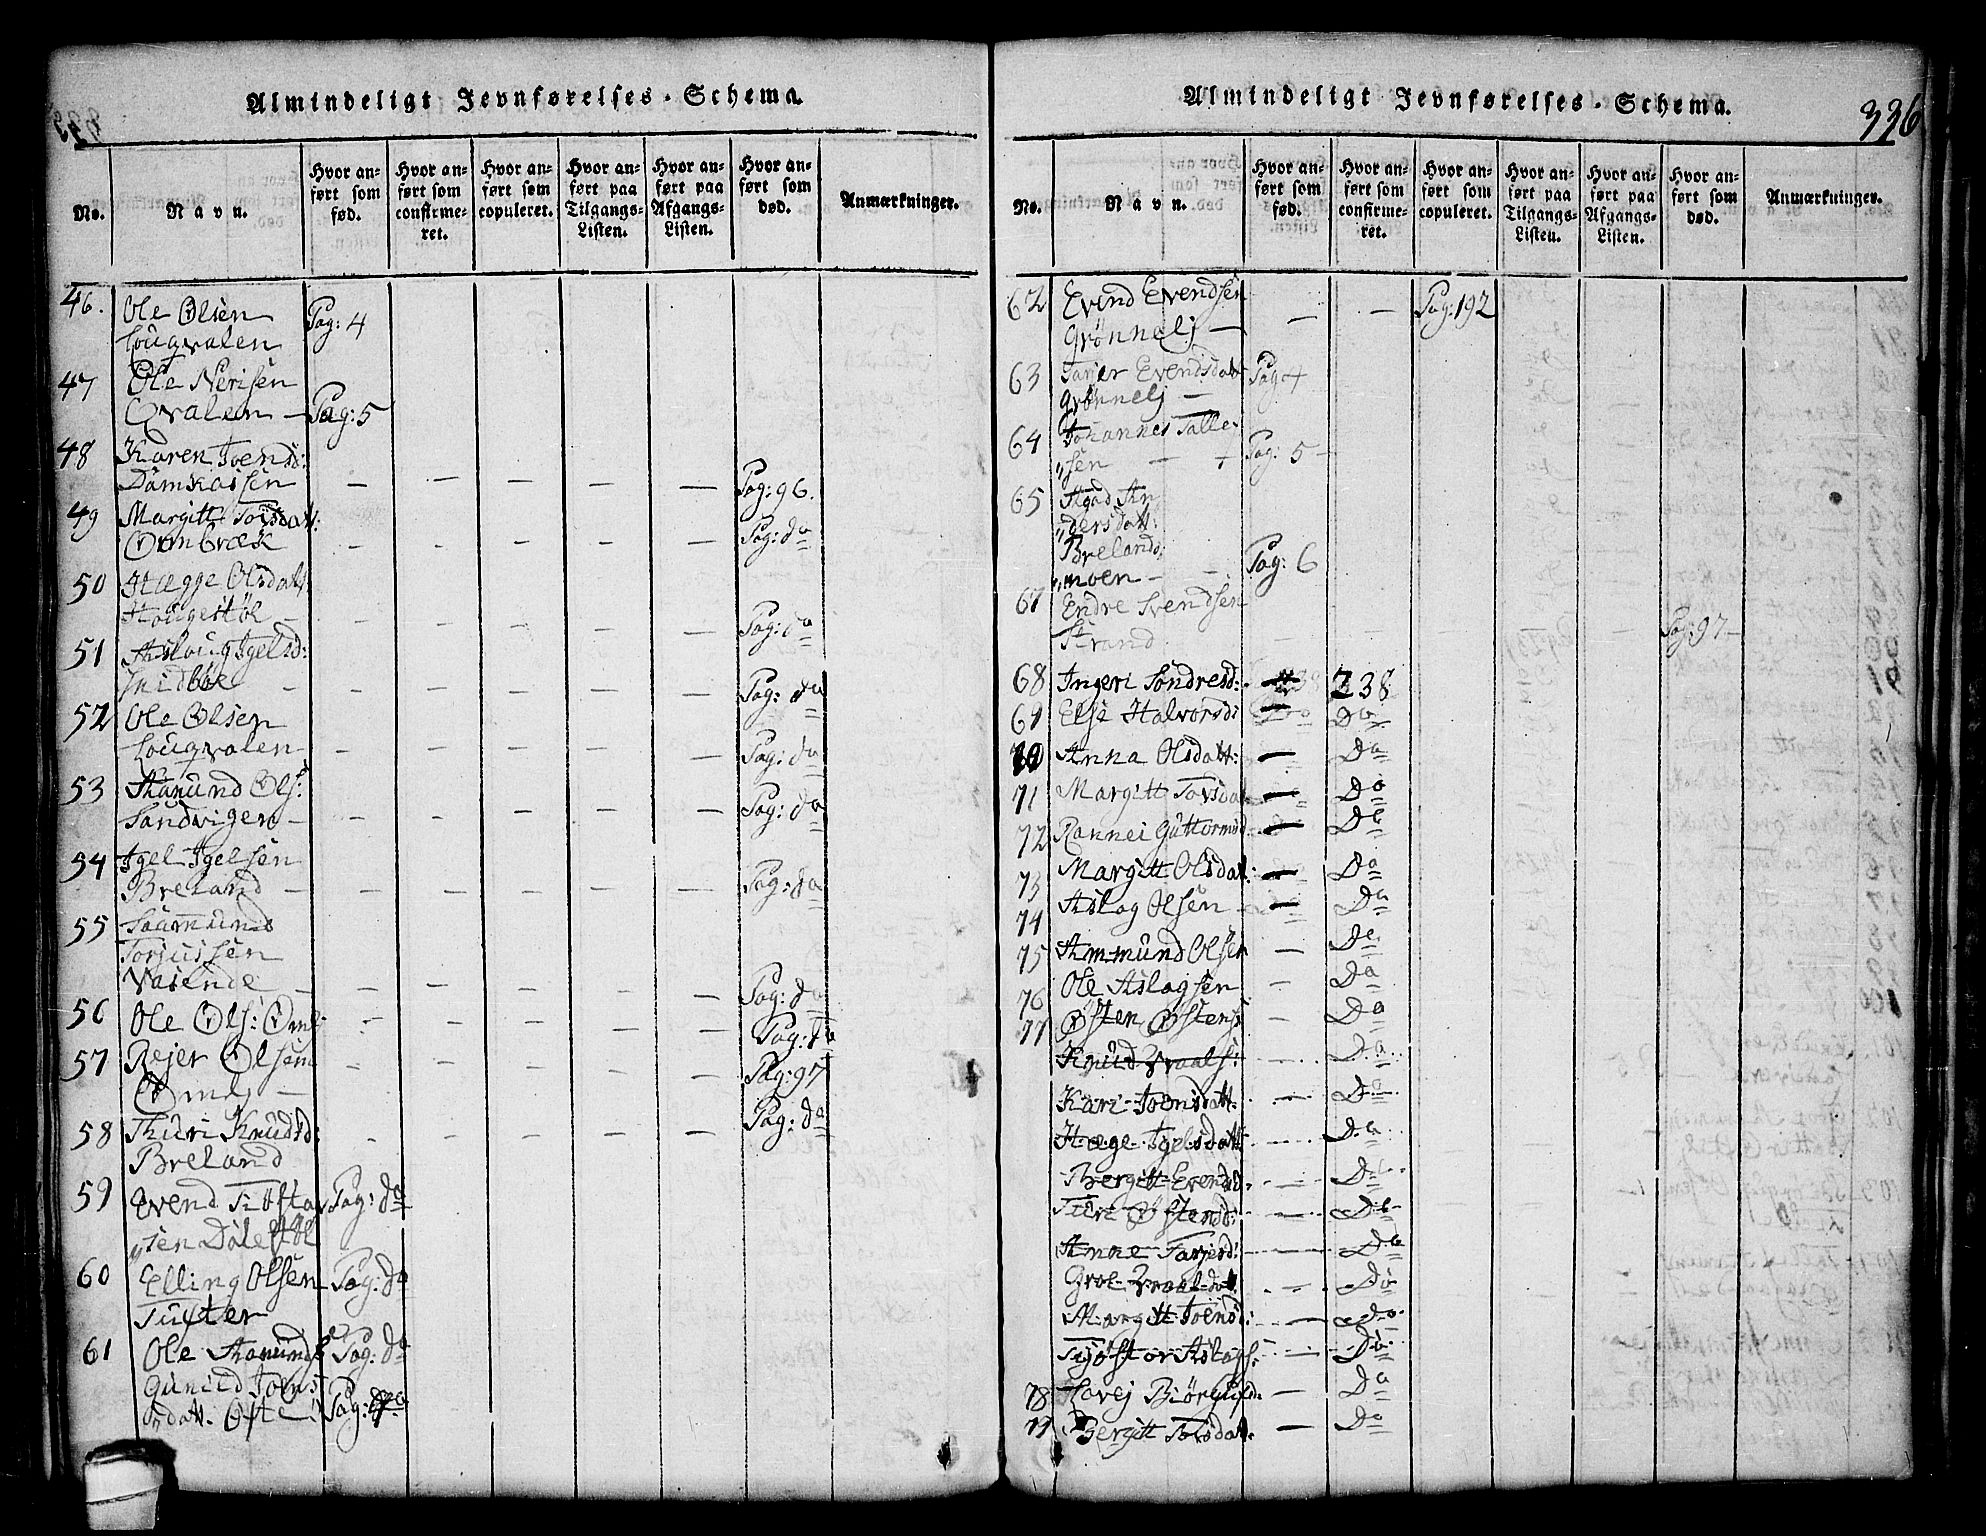 Almindeligt Jevnførelses-Schema.
No.
Navn.
Hvor anført som fød.
Hvor anført som confirmeret.
Hvor anført som copuleret.
Hvor anført paa Tilgangs-Listen.
Hvor anført paa Afgangs-Listen.
Hvor anført som død.
Anmærkninger.
46. Ole Olsen
Lougvalen Pag: 4
47 Ole Nerisen
Qvalen — Pag: 5
48 Karen Joensd:
— — — — — Pag: 96.
49 Margitt Torsdatt:
Ormbræk — — — — — Pag: do
50 Hægge Olsdatt
Hougestöl — — — — — — Pag: do
51 Asloug Igelsd:
— — — — — — Pag: do
52 Ole Olsen
Lougvalen — — — — — Pag: do
53 Aamund Ols:
Sandvigen — — — — — — Pag: do
54 Igel Igelsen
Breland — — — — — — Pag: do
55 Saamund
Torjussen
Vasende — — — — — — Pag: do
56 Ole Ols: — — — — — Pag: do
57 Rejer Olsen
— — — — — — Pag: 97
58 Thuri Knudsd:
Breland — — — — — Pag: do
59 Evend Pag: do
„sen
60 Elling Olsen Pag: do
Tufter
61 Ole Aamunds Pag: do
Gunild Joens
datt. Pag:
Almindeligt Jevnførelses-Schema.
336
No.
Navn.
Hvor anført som fød.
Hvor anført som confirmeret.
Hvor anført som copuleret.
Hvor anført paa Tilgangs-Listen.
Hvor anført paa Afgangs-Listen.
Hvor anført som død.
Anmærkninger.
62 Evend Evendsen
Grönnelj — — — Pag: 192
63 Tarjer Evendsdatt Pag: 4
Grönnelj —
64 Johannes Talle„
„sen — + Pag: 5 —
65 Aagod An
„dersdatt:
Brelands„
„moen — — Pag: 6
67 Endre Svendsen
Strand — — — — — Pag: 97 —
68 Ingeri Söndresd: 238
69 Else Halvorsd: Do
70 Anna Olsdatt: — Do
71 Margitt Torsdat — Do
72 Rannei Guttormsd — Do
73 Margitt Olsdat: — Do
74 Aslag Olsen — Do
75 Ammund Olsen — Do
76 Ole Aslagsen — Do
77 Østen Østens — Do
Knud Vraals: — Do
Kari Joensdatt. — Do
Hæge Igelsdatt — Do
Bergitt Evensd. — Do
Turi Østensd: — Do
Anne Tarjesd: — Do
Groe Vraalsdat. — Do
Margitt Joensd: — Do
Tjöstor Aslags: — Do
78 Lavej — Do
79 Bergitt Torsdat. — Do